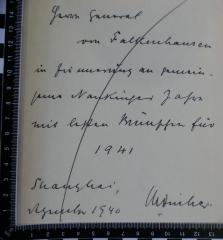 Herrn General
von Falkenhausen
in Erinnerung an gemein-
same Nankinger Jahre
mit besten Wünschen für
1941
Shanghai,
Dezember 1940